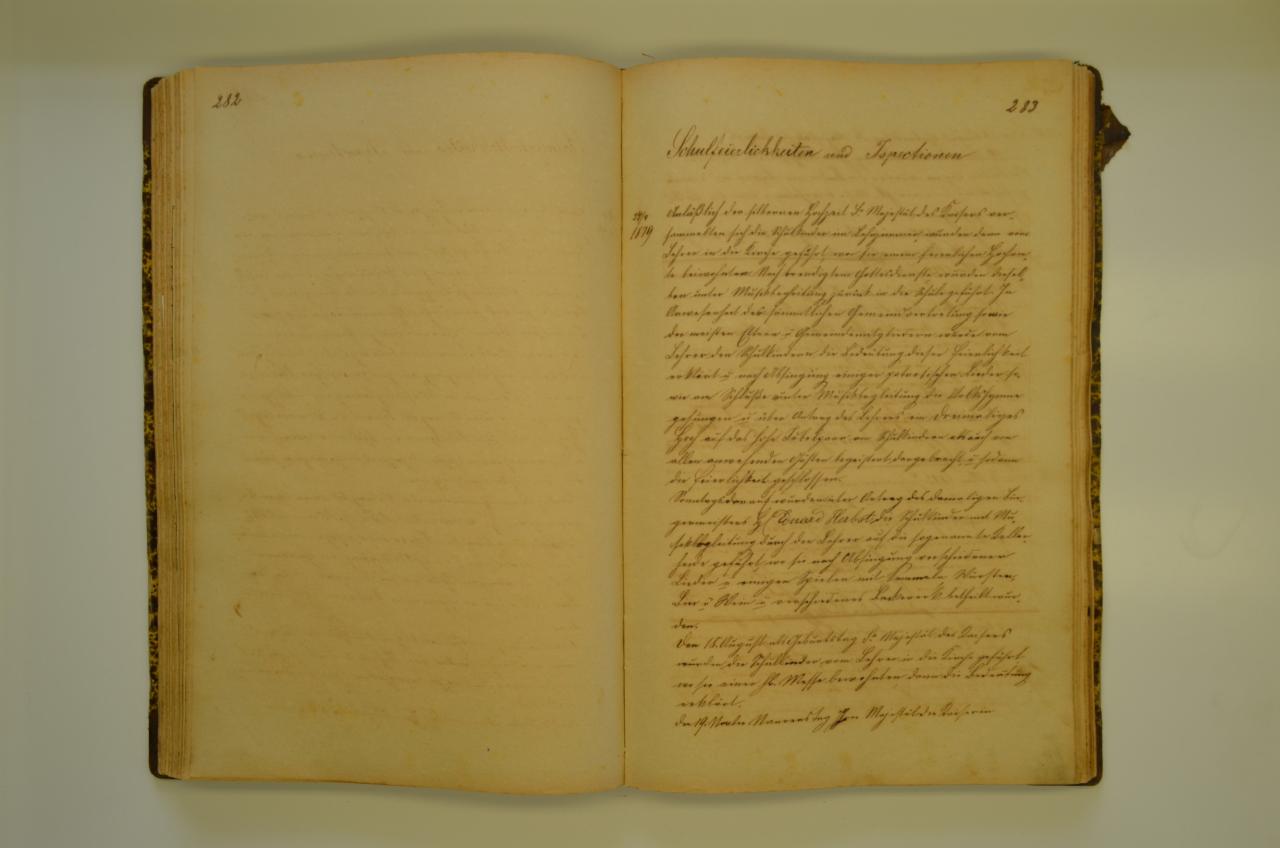 282
283
Schulfeierlichkeiten und Inspectionen
24/4
1879
Anläßlich der silbernen Hochzeit Sr Majestät des Kaisers ver-
sammelten sich die Schulkinder im Lehrzimmer, wurden dann vom
Lehrer in die Kirche geführt, wo sie einem feierlichen Hocham-
te beiwohnten. Nach beendigtem Gottesdienste wurden diesel-
ben unter Musikbegleitung zurück in die Schule geführt. In
Anwesenheit der sämmtlichen Gemeindevertretung sowie
der meisten Eltern u Gemeindemitgliedern wurde vom
Lehrer den Schulkindern die Bedeutung dieser Feierlichkeit
erklärt u nach Absingung einiger patriotischen Lieder so-
wie am Schluße unter Musikbegleitung die Volkshymne
gesungen u über Antrag des Lehrers ein dreimaliges
Hoch auf das hohe Jubelpaar von Schulkindern als auch von
allen anwesenden Gästen begeistert dargebracht u sodann
die Feierlichkeit geschlossen.
Sonntags darauf wurden über Antrag des damaligen Bür-
germeisters H. Eduard Herbst, die Schulkinder mit Mu-
sikbegleitung durch den Lehrer auf die sogenannte
geführt, wo sie nach Absingung verschiedener
Lieder u einigen Spielen mit Semmeln Würsten,
Bier u Wein u verschiedenes Backwerk betheilt wur-
den.
Den 18. August als Geburtstag Sr Majestät des Kaisers
wurden die Schulkinder vom Lehrer in die Kirche geführt
wo sie einer hl. Messe beiwohnten dann die Bedeutung
erklärt.
Den 19. Novbr Namenstag Ihrer Majestät der Kaiserin